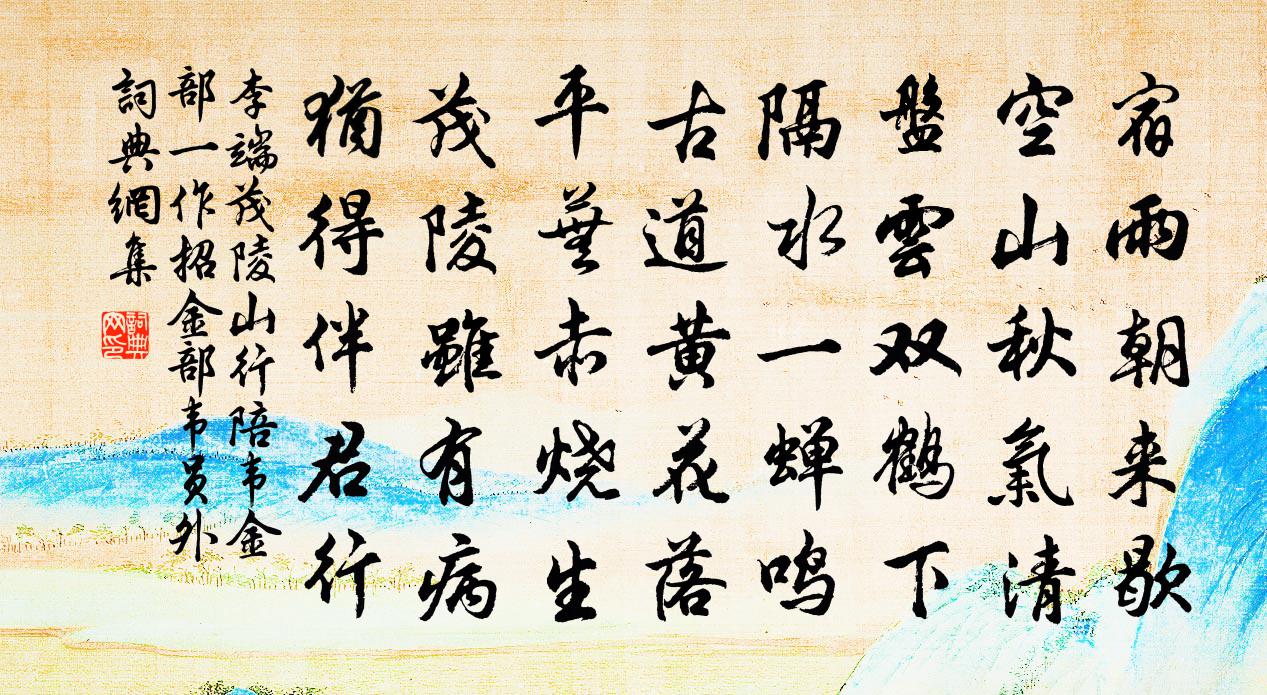 宿雨朝来歇
空山秋氣清
盤雲双鶴下
隔水一蝉鸣
古道黄花落
平蕪赤烧生
茂陵雖有病
猶得伴君行
李端茂陵山行陪韦金
部一作招金部韦员外
詞典網集
詞典
网印